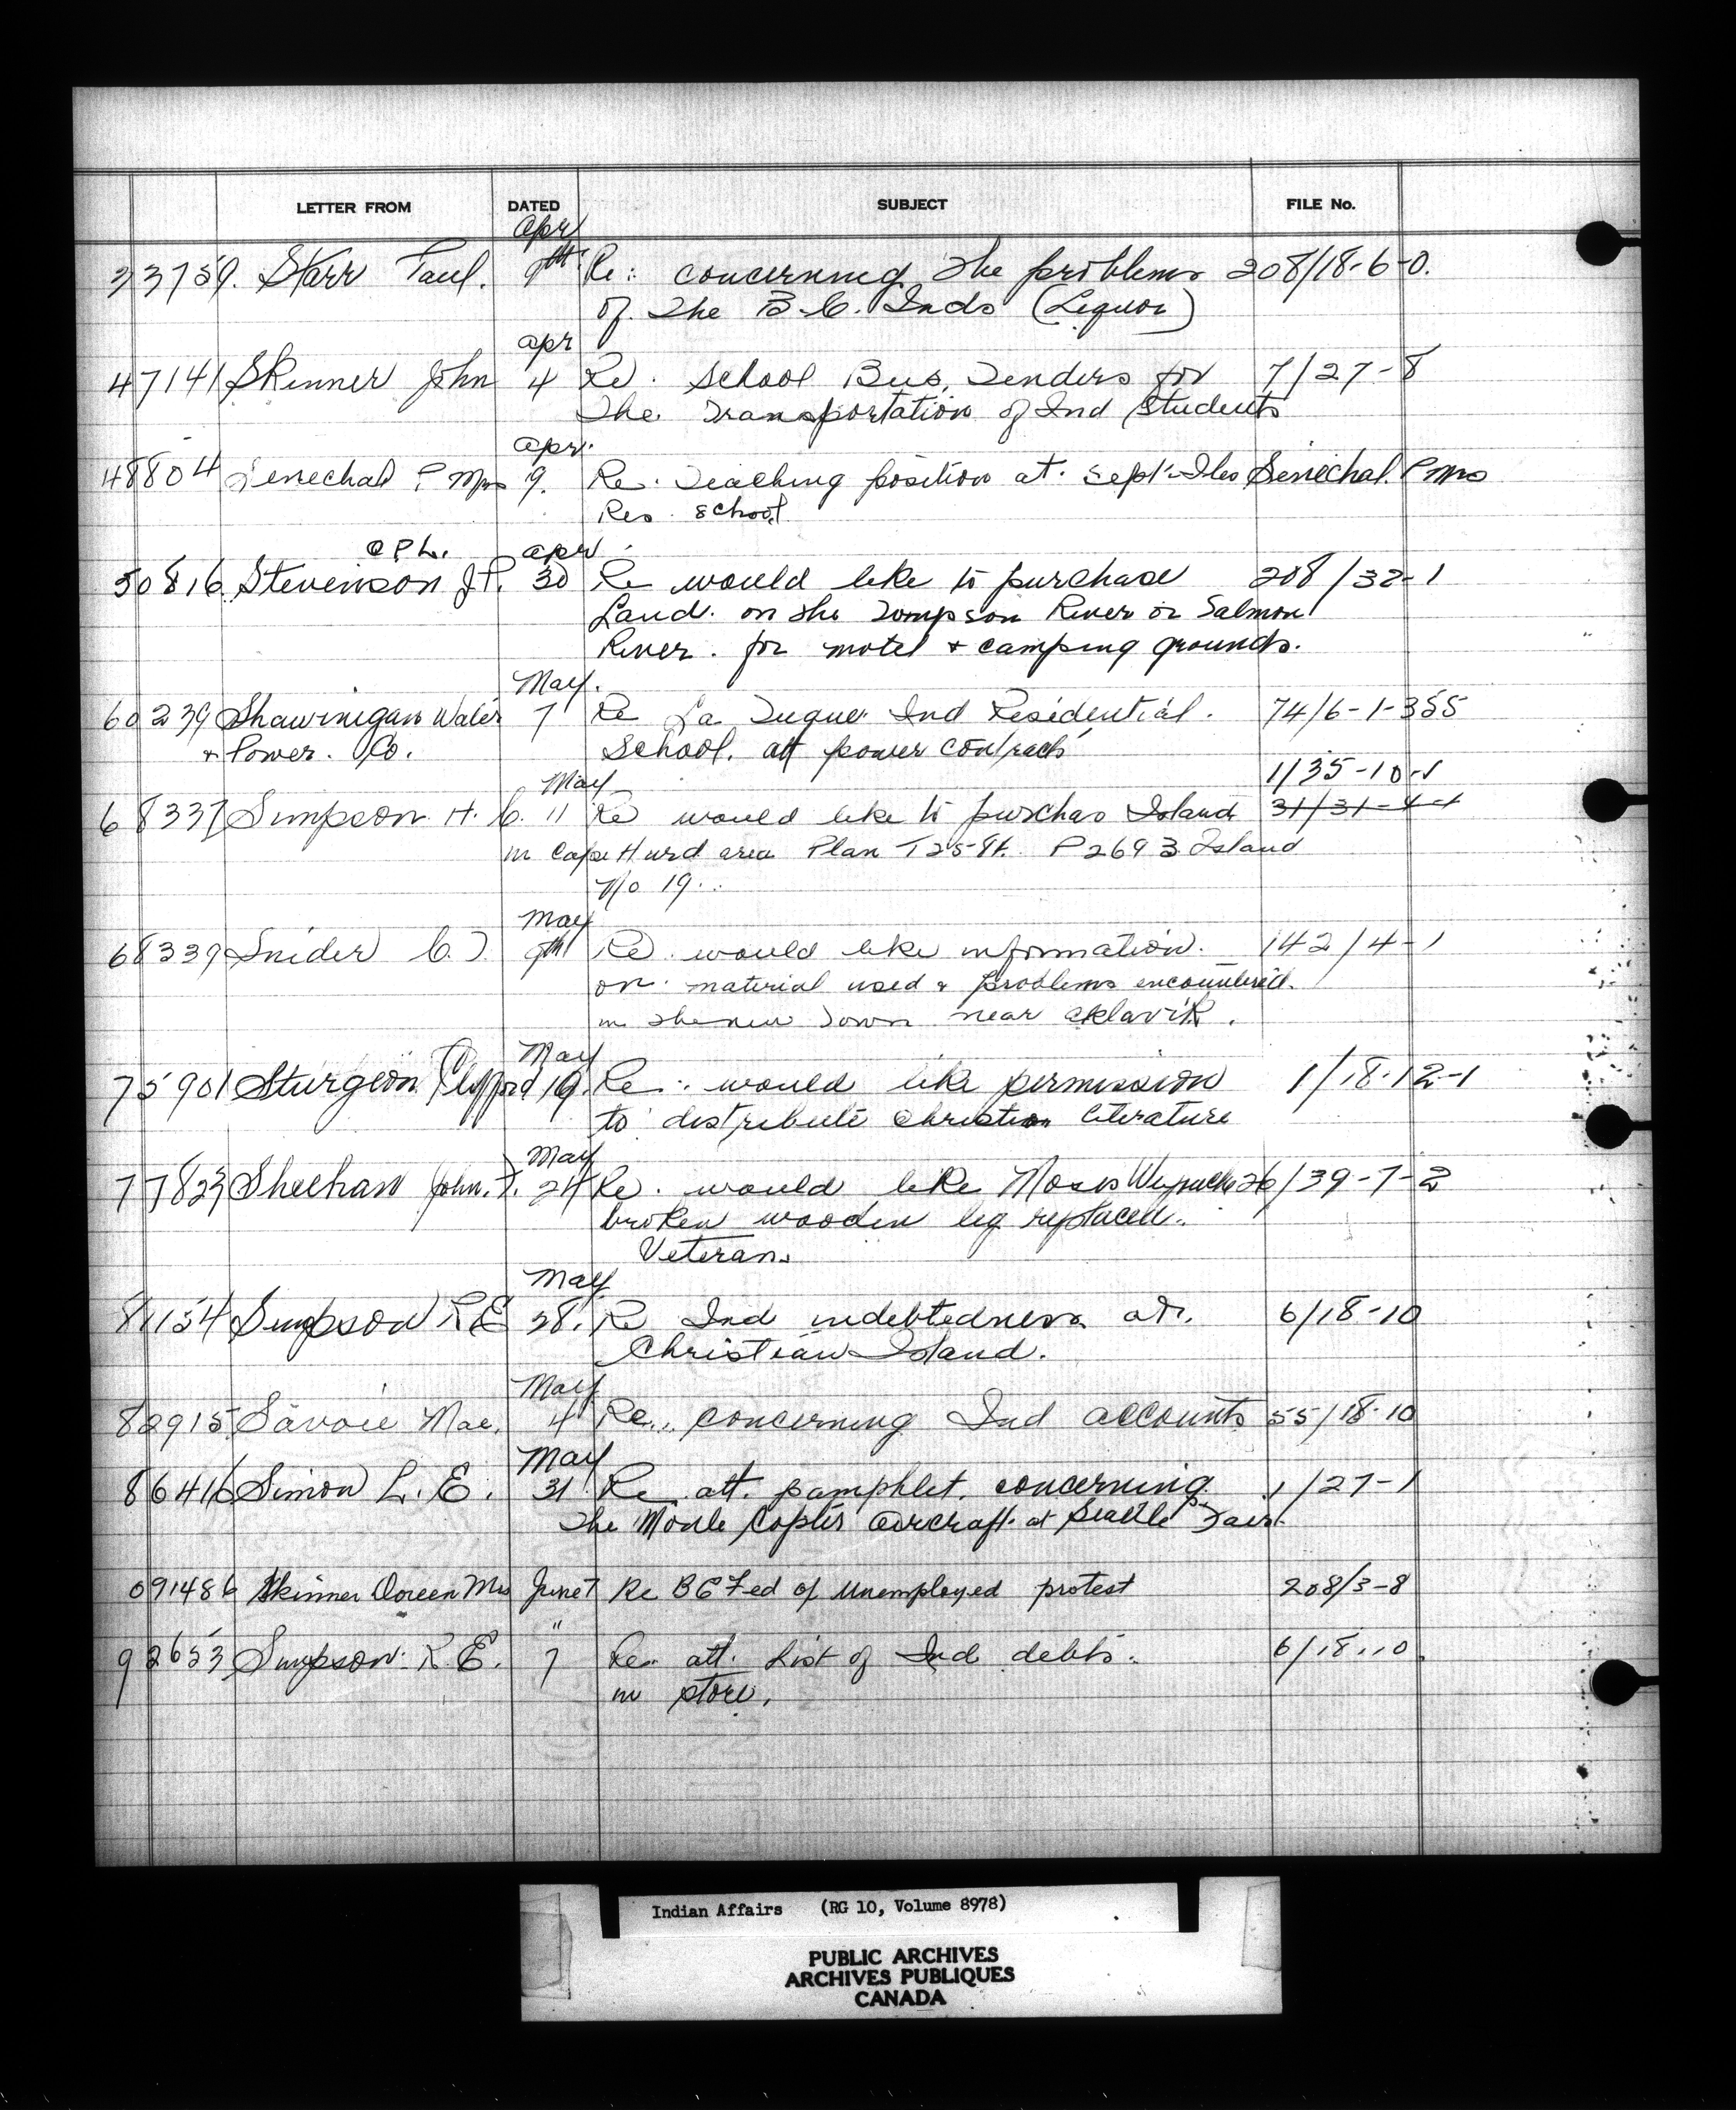 LETTER FROM DATED SUBJECT FILE No.
Apr
23759. Starr Paul. 9th Re: concerning the problems 208/18-6-0.
of the B.C. Inds (Liquor)
apr
47141 Skinner John 4 Re. School Bus, Tenders for 7/27-8
the Transportation of Ind Students
apr.
48804 Senechal P Mrs 9. Re. Teaching position at. Sept-Iles Senechal. P Mrs
Res. school
CPL. apr
50816 Stevenson J.P. 30 Re would like to purchase 208/32-1
Land. on the Tompson River or Salmon
River. for motel + camping grounds.
May.
60239 Shawinigan Water 7 Re La Tuque Ind Residential. 74/6-1-355
+ Power. Co. School. att power contracts
1/35-10-1
May
68337 Simpson H. C. 11 Re would like to purchas Island 31/31-4-4
in Cape Hurd area Plan T25-91. P2693 Island
No 19..
May
68339 Snider C. J. 9th Re. would like information. 142/4-1
on. material used & problems encountered.
in the new Town near Aklavik.
May
75901 Sturgeon Clifford 19. Re. would like permission 1/18-12-1
to distribute Christian Literature
May
77823 Sheehan John. F. 24 Re. would like Moses 26/39-7-2
broken wooden leg replaced.
Veteran.
May
81154 Simpson R E 28. Re Ind indebtedness at. 6/18-10
Christian Island.
May
82915 Savoie Mae. 4 Re.. concerning Ind accounts 55/18-10
May
86416 Simon L. E. 31 Re att. pamphlet. concerning 1/27-1
The Copter aircraft. at Seattle Fair.
091486 Skinner Doreen Mrs June 7 Re B C Fed of Unemployed protest 208/3-8
"
92653 Simpson. R. E. 7 Re att. List of Ind debts. 6/18-10.
in store.
Indian Affairs (RG 10, Volume 8978)
PUBLIC ARCHIVES
ARCHIVES PUBLIQUES
CANADA